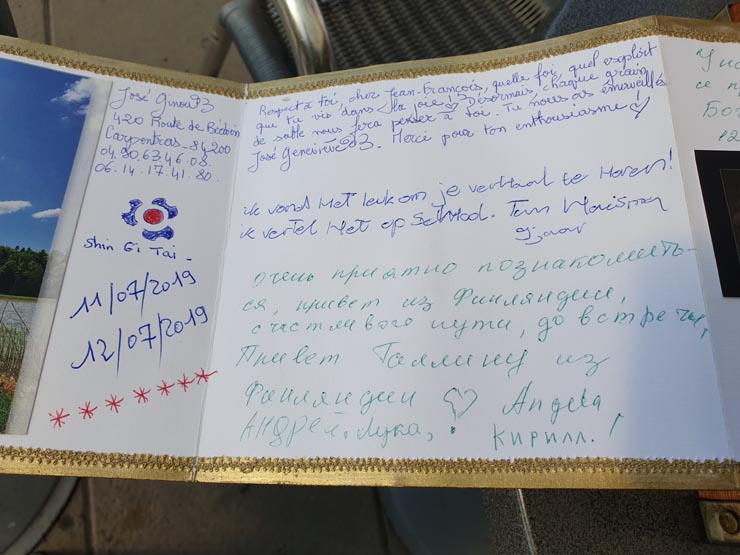 José Geneviève B
420 Route de Bédoin
Carpentras - 84200
04.90.63.46.08.
06.14.17.41.80.
Shin Gi Tai -
11/07/2019
12/07/2019
Respect à toi, cher Jean-François, quelle foi, quel exploit
que tu vis dans la joie! Désormais, chaque grain
de sable nous fera penser à toi. Tu nous as émerveillés
José Geneviève B. Merci pour ton enthousiasme!
ik vond Het leuk om je verhaal te Horen!
ik vertel Het op School. Tam
9 jaar
очень приятно познакомить-
ся, привет из Финляндии,
счастливого пути, до встречи,
Привет Таллину из
Финляндии Angela
АНДРЕЙ, Лука,
Кирилл.!
се
Бог